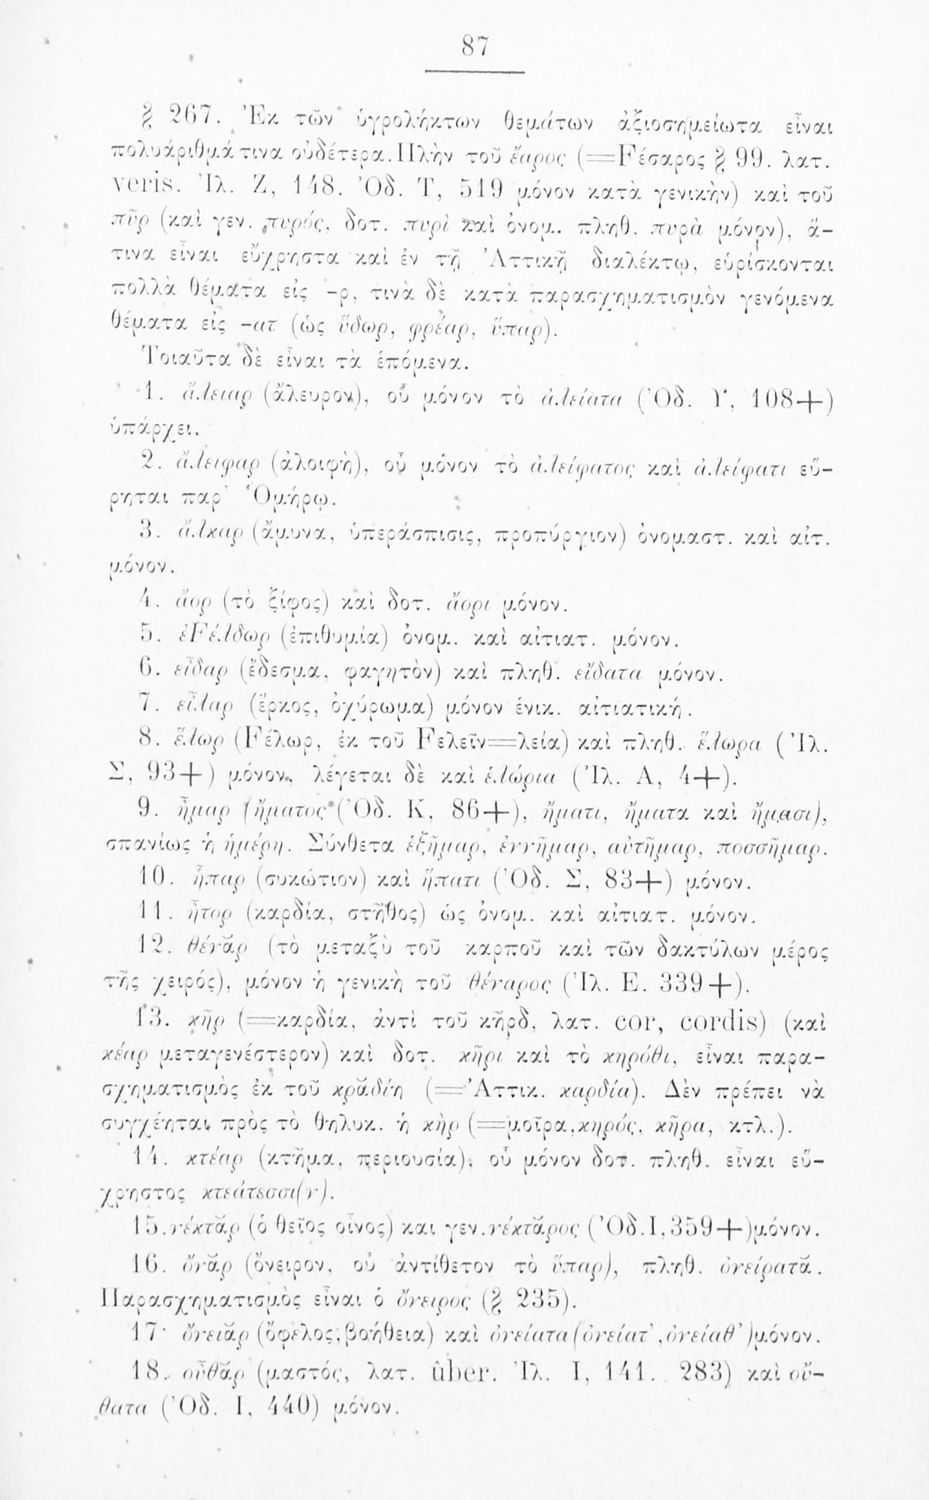 87
§ 267. Ἐκ τῶν ὑγρολήκτων θεμάτων ἀξιοσημείωτα εἶναι
πολυάριθμά τινα οὐδέτερα. Πλὴν τοῦ ἔαρος (=Fέσαρος § 99. λατ.
veris. Ἰλ. Ζ, 148. Ὀδ. Τ, 519 μόνον κατὰ γενικὴν) καὶ τοῦ
πῦρ (καὶ γεν. πυρός, δοτ. πυρὶ καὶ ὀνομ. πληθ. πυρὰ μόνον), ἅ-
τινα εἶναι εὔχρηστα καὶ ἐν τῇ Ἀττικῇ διαλέκτῳ, εὑρίσκονται
πολλὰ θέματα εἰς -ρ, τινὰ δὲ κατὰ παρασχηματισμὸν γενόμενα
θέματα εἰς -ατ (ὡς ὕδωρ, φρέαρ, ὕπαρ).
Τοιαῦτα δὲ εἶναι τὰ ἑπόμενα.
1. ἄλειαρ (ἄλευρον), οὗ μόνον τὸ ἀλείατα (Ὀδ. Υ, 108+)
ὑπάρχει.
2. ἄλειφαρ (ἀλοιφὴ), οὗ μόνον τὸ ἀλείφατος καὶ ἀλείφατι εὕ-
ρηται παρ' Ὁμήρῳ.
3. ἄλκαρ (ἄμυνα, ὑπεράσπισις, προπύργιον) ὀνομαστ. καὶ αἰτ.
μόνον.
4. ἄορ (τὸ ξίφος) καὶ δοτ. ἄορι μόνον.
5. ἐFέλδωρ (ἐπιθυμία) ὀνομ. καὶ αἰτιατ. μόνον.
6. εἶδαρ (ἔδεσμα, φαγητὸν) καὶ πληθ. εἴδατα μόνον.
7. εἶλαρ (ἕρκος, ὀχύρωμα) μόνον ἑνικ. αἰτιατική.
8. ἕλωρ (Fέλωρ, ἐκ τοῦ Fελεῖν=λεία) καὶ πληθ. ἕλωρα (Ἰλ.
Σ, 93+) μόνον, λέγεται δὲ καὶ ἑλώρια (Ἰλ. Α, 4+).
9. ἦμαρ (ἤματος (Ὀδ. Κ, 86+), ἤματι, ἤματα καὶ ἤμασι),
σπανίως ἡ ἡμέρη. Σύνθετα ἑξῆμαρ, ἐννῆμαρ, αὐτῆμαρ, ποσσῆμαρ.
10. ἧπαρ (συκώτιον) καὶ ἥπατι (Ὀδ. Σ, 83+) μόνον.
11. ἦτορ (καρδία, στῆθος) ὡς ὀνομ. καὶ αἰτιατ. μόνον.
12. θένᾰρ (τὸ μεταξὺ τοῦ καρποῦ καὶ τῶν δακτύλων μέρος
τῆς χειρός), μόνον ἡ γενικὴ τοῦ θέναρος (Ἰλ. Ε. 339+).
13. κῆρ (=καρδία, ἀντὶ τοῦ κῆρδ, λατ. cor, cordis) (καὶ
κέαρ μεταγενέστερον) καὶ δοτ. κῆρι καὶ τὸ κηρόθι, εἶναι παρα-
σχηματισμὸς ἐκ τοῦ κρᾰδίη (=Ἀττικ. καρδία). Δὲν πρέπει νὰ
συγχέηται πρὸς τὸ θηλυκ. ἡ κὴρ (=μοῖρα, κηρός, κῆρα, κτλ.).
14. κτέαρ (κτῆμα, περιουσία), οὗ μόνον δοτ. πληθ. εἶναι εὔ-
χρηστος κτεάτεσσι(ν).
15. νέκτᾰρ (ὁ θεῖος οἶνος) και γεν. νέκτᾰρος (Ὀδ. Ι, 359+) μόνον.
16. ὄνᾰρ (ὄνειρον, οὗ ἀντίθετον τὸ ὕπαρ), πληθ. ὀνείρατᾰ.
Παρασχηματισμὸς εἶναι ὁ ὄνειρος (§ 235).
17. ὄνειᾰρ (ὄφελος, βοήθεια) καὶ ὀνείατα (ὀνείατ', ὀνείαθ') μόνον.
18. οὖθᾰρ (μαστός, λατ. ûber. Ἰλ. Ι, 141. 283) καὶ οὔ-
θατα (Ὀδ. Ι, 440) μόνον.